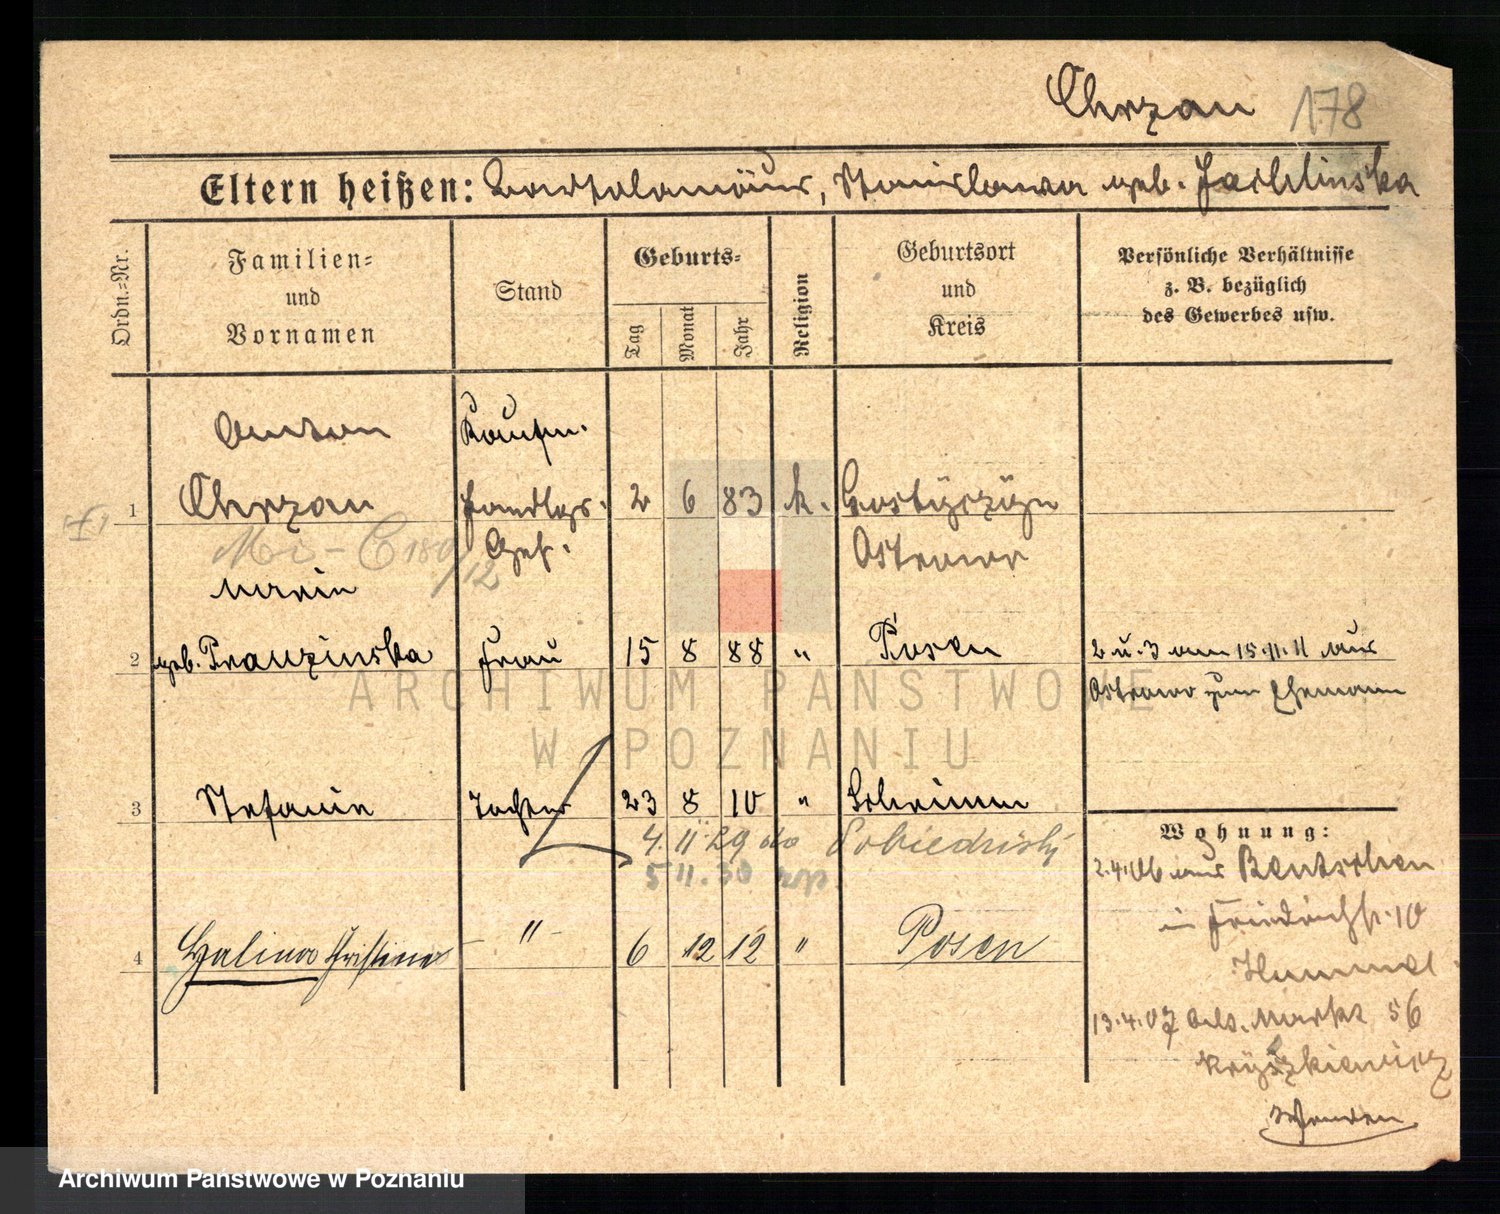 Chrzan 178
Eltern heißen: Bartolomäus, Stanislawa geb. Jachlinska
Ordn.-Nr.
Familien-
und
Vornamen
Stand
Geburts-
Tag
Monat
Jahr
Religion
Geburtsort
und
Kreis
Persönliche Verhältnisse
z. B. bezüglich
des Gewerbes usw.
Anton Kaufm.
1 Chrzan Handlgs. 2 6 83 k.
Geh. Ostrowo
Maria
2 geb. Franzinska Frau 15 8 88 " Posen 2 u. 3 am 15.11.11 aus
Ostrowo zum Ehemann
3 Stefanie Tochter 23 8 10 " Schrimm
4. 11 29 do
5 11. 30
4 Halina Kristina " 6 12 12 " Posen
Wohnung:
2.4.06 aus Bentschen
in Friedrichstr. 10
Hummel
13.4.07 Alt. Markt 56
Kryszkiewicz
ARCHIWUM PAŃSTWOWE
W POZNANIU
Archiwum Państwowe w Poznaniu